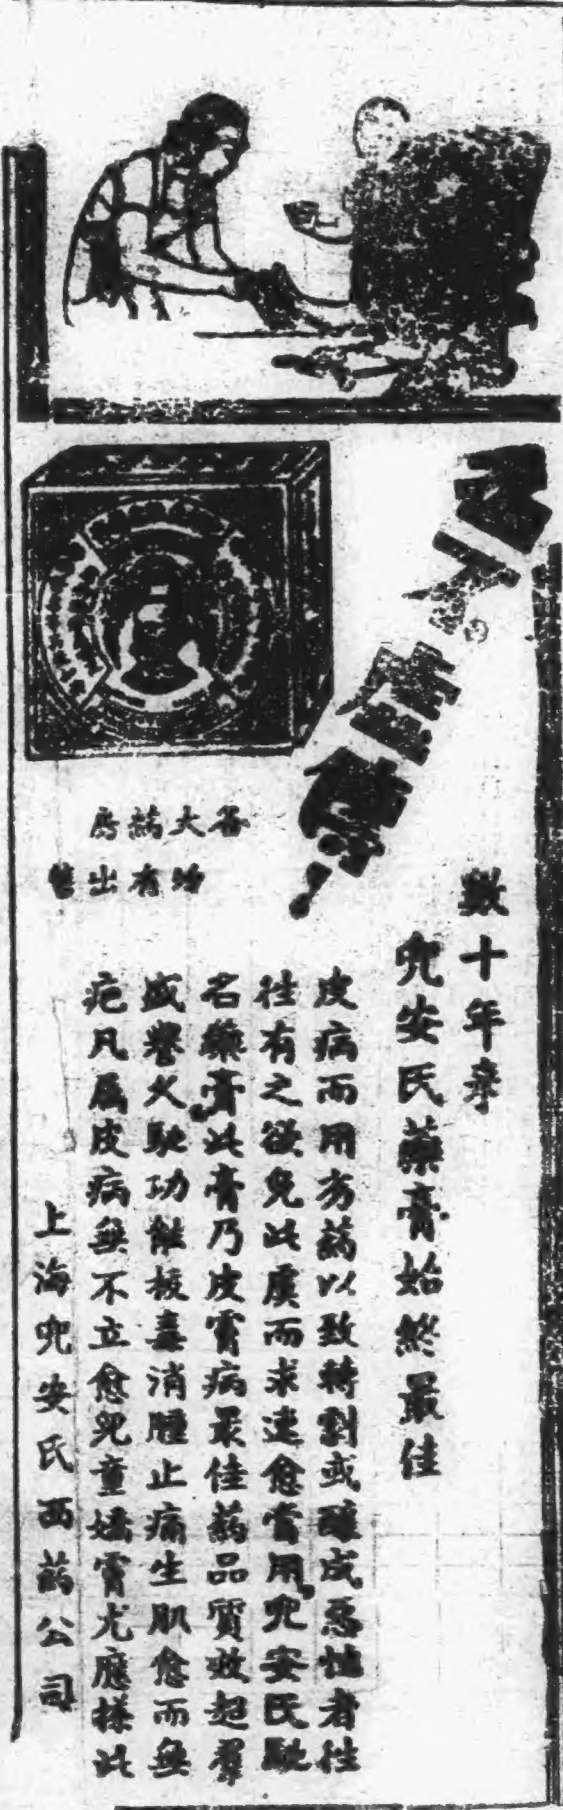 數十年來
兜安氏藥膏始終最佳
皮病而用劣葯以致轉劇或釀成惡性者往
往有之欲免此虞而求速愈當用兜安氏馳
名藥膏此膏乃皮膚病最佳葯品質效超羣
盛譽久馳功能拔毒消腫止痛生肌愈而無
疤凡屬皮病無不立愈兒童嬌膚尤應擇此
上海兜安氏西葯公司
各大葯房
均有出售